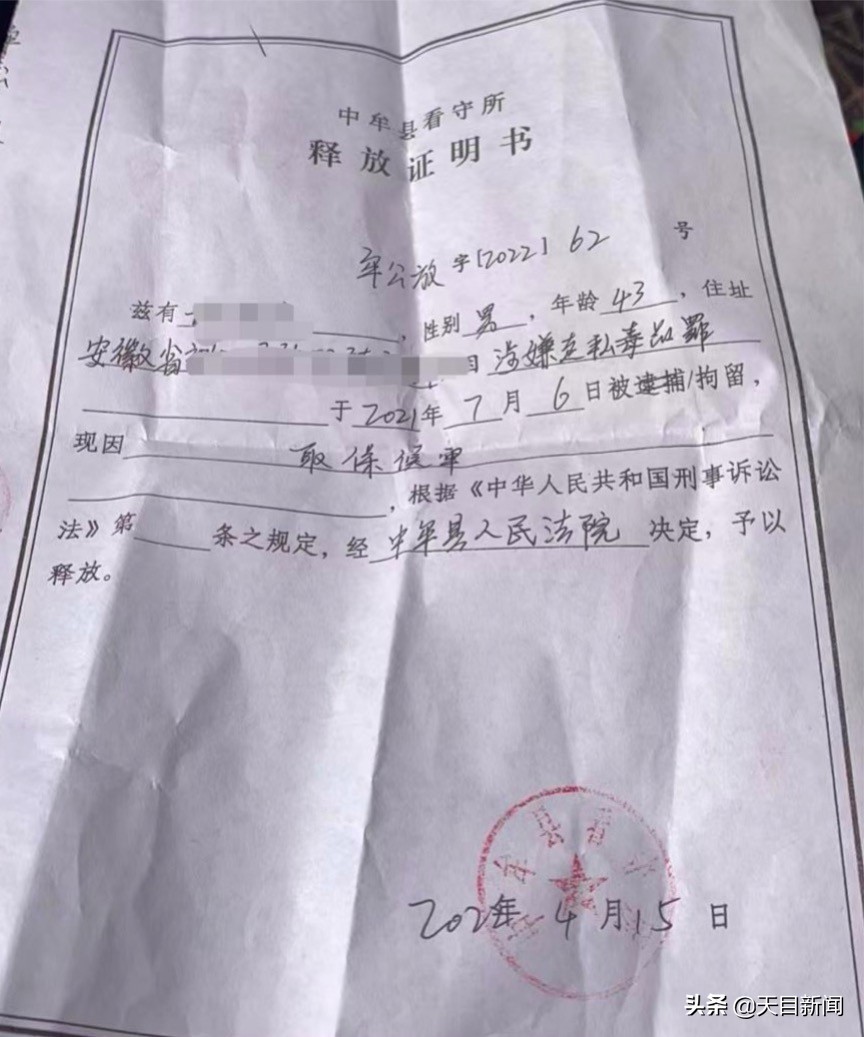 中牟县看守所
释放证明书
牟公放字[2022]62号
兹有，性别男，年龄43，住址
安徽省涉嫌走私毒品罪
于2021年7月6日被逮捕/拘留，
现因取保候审
，根据《中华人民共和国刑事诉讼
法》第条之规定，经中牟县人民法院决定，予以
释放。
2022年4月15日
头条 @天目新闻